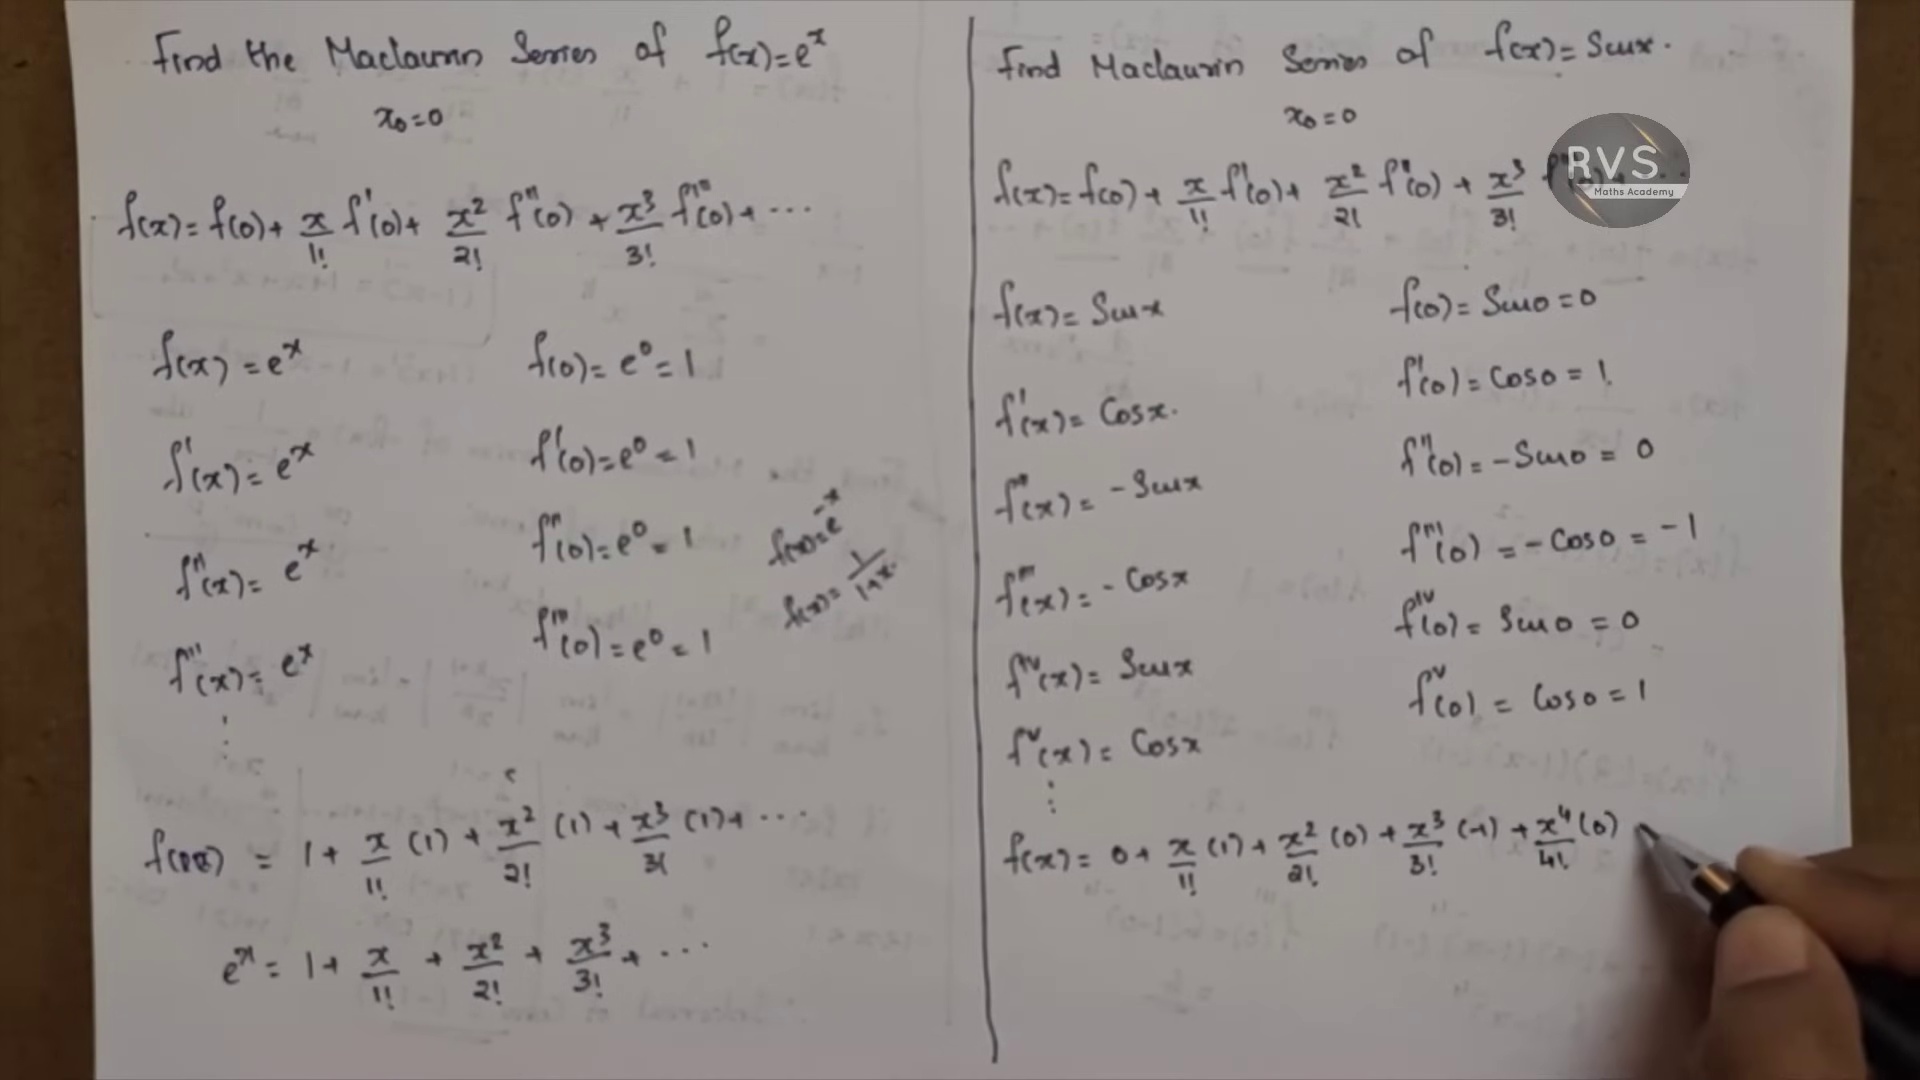 Find the Maclaurin Series of f(x)=eˣ
x₀=0
f(x)= f(0)+ x/1! f'(0)+ x²/2! f''(0) + x³/3! f'''(0)+ ...
f(x) = eˣ
f(0)= e⁰ = 1
f'(x)= eˣ
f'(0)= e⁰ = 1
f''(x)= eˣ
f''(0)= e⁰ = 1
f'''(x)= eˣ
f'''(0)= e⁰ = 1
⋮
f(x)= e⁻ˣ
f(x)= 1/1+x
= 1+ x/1! (1) + x²/2! (1) + x³/3! (1)+ ...
eˣ = 1+ x/1! + x²/2! + x³/3! + ...
Find Maclaurin Series of f(x)= Sinx.
x₀=0
f(x)= f(0)+ x/1! f'(0)+ x²/2! f''(0) + x³/3!
RVS
Maths Academy
f(x)= Sinx
f(0)= Sin0 = 0
f'(x)= Cosx.
f'(0) = Cos0 = 1.
f''(x) = -Sinx
f''(0) = -Sin0 = 0
f'''(x)= -Cosx
f'''(0) = -Cos0 = -1
fⁱᵛ(x)= Sinx
fⁱᵛ(0)= Sin0 = 0
fᵛ(x)= Cosx
fᵛ(0) = Cos0 = 1
⋮
f(x)= 0+ x/1! (1)+ x²/2! (0) + x³/3! (-1) + x⁴/4! (0)